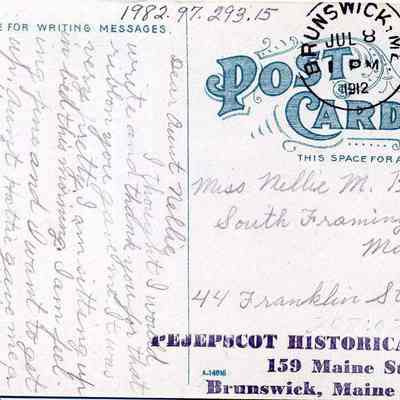 1982.97.293.15
E FOR WRITING MESSAGES.
Dear Aunt Nellie
I thought I would
write and thank you for that
you gave me. It was
very pretty. I am sitting up
in bed this morning. I am feel-
ing fine and I want to get
up. Aunt Hattie gave me a
BRUNSWICK, ME.
JUL 8
1 PM
1912
POST CARD
THIS SPACE FOR A
Miss Nellie M. B
South Framing
Ma
44 Franklin St
PEJEPSCOT HISTORICA
159 Maine St
Brunswick, Maine
A-14816